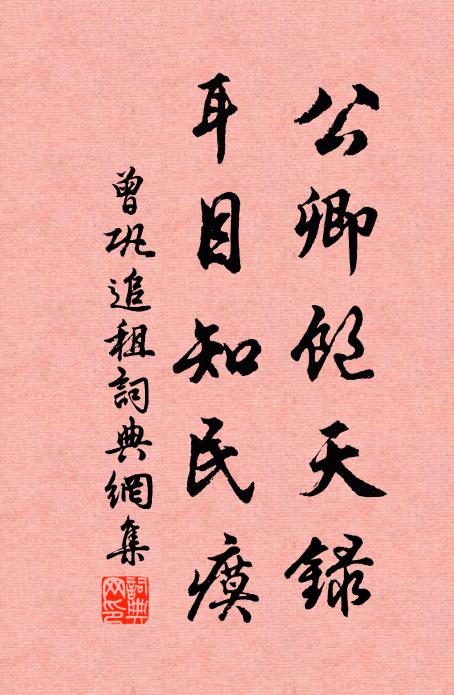 公卿飽天録
耳目知民瘼
曾巩追租詞典網集
詞典
网印